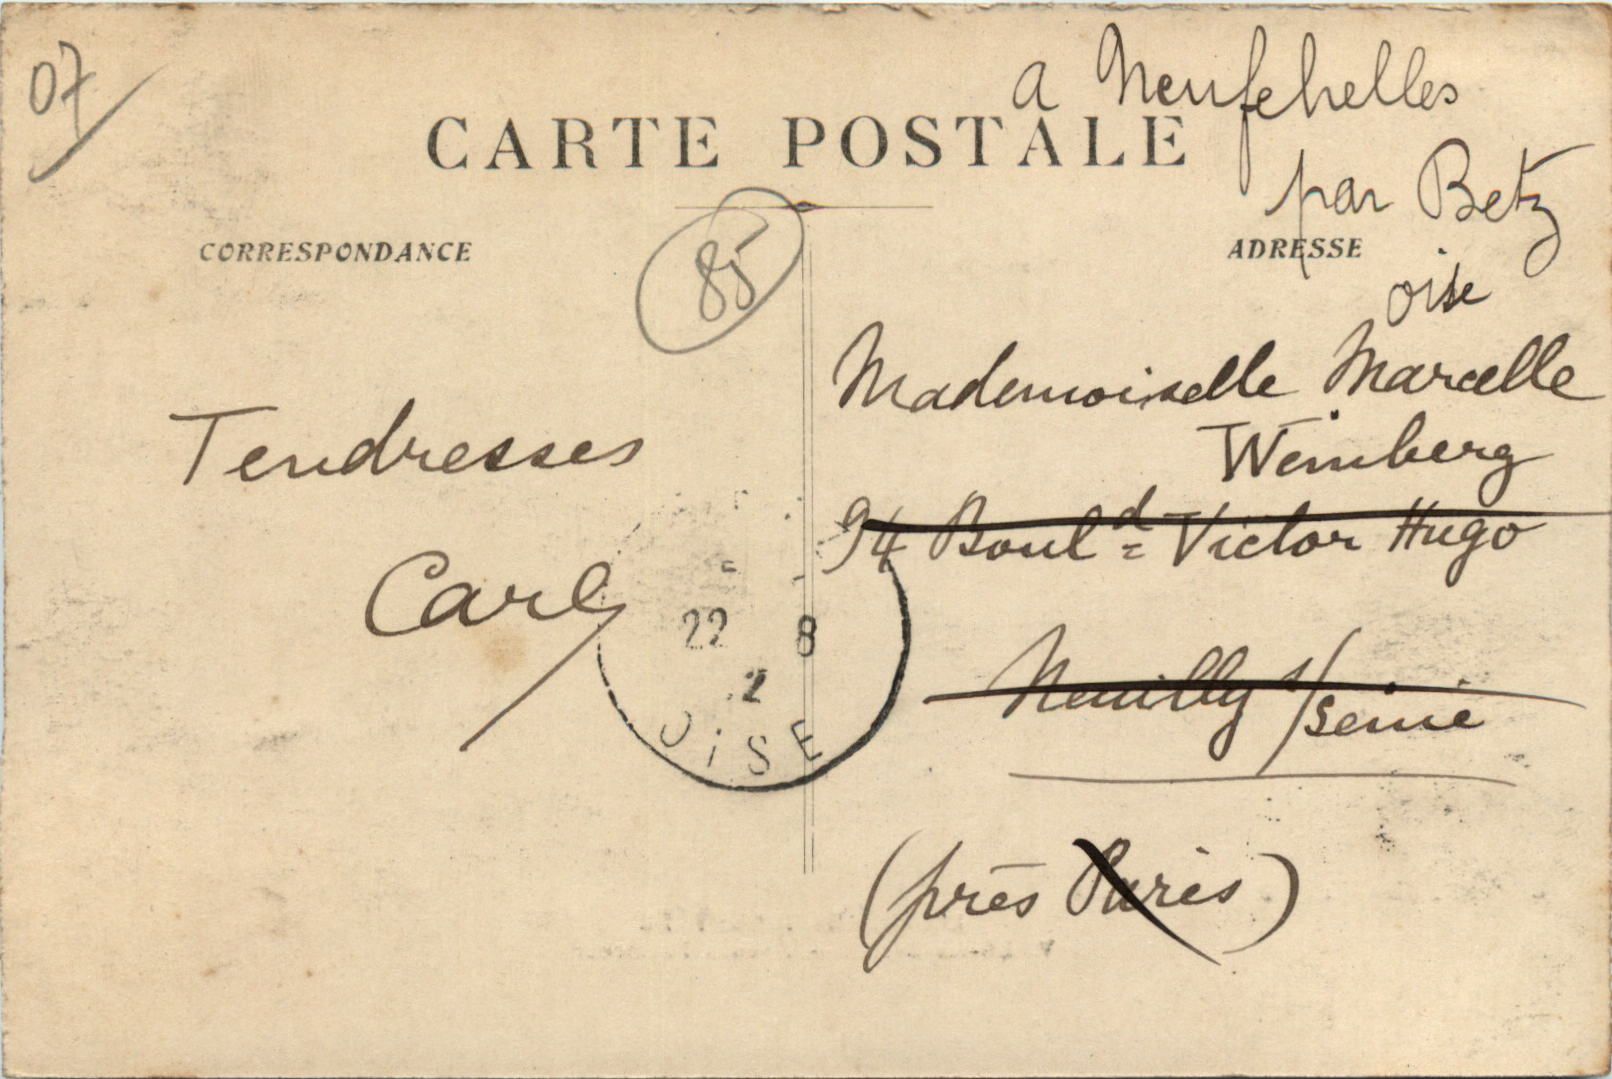 07
a Neufchelles
CARTE POSTALE
par Betz
CORRESPONDANCE
ADRESSE
85
oise
Mademoiselle Marcelle
Weinberg
94 Boul.d Victor Hugo
Neuilly s/seine
(près Paris)
Tendresses
Carl
22 8
2
OISE